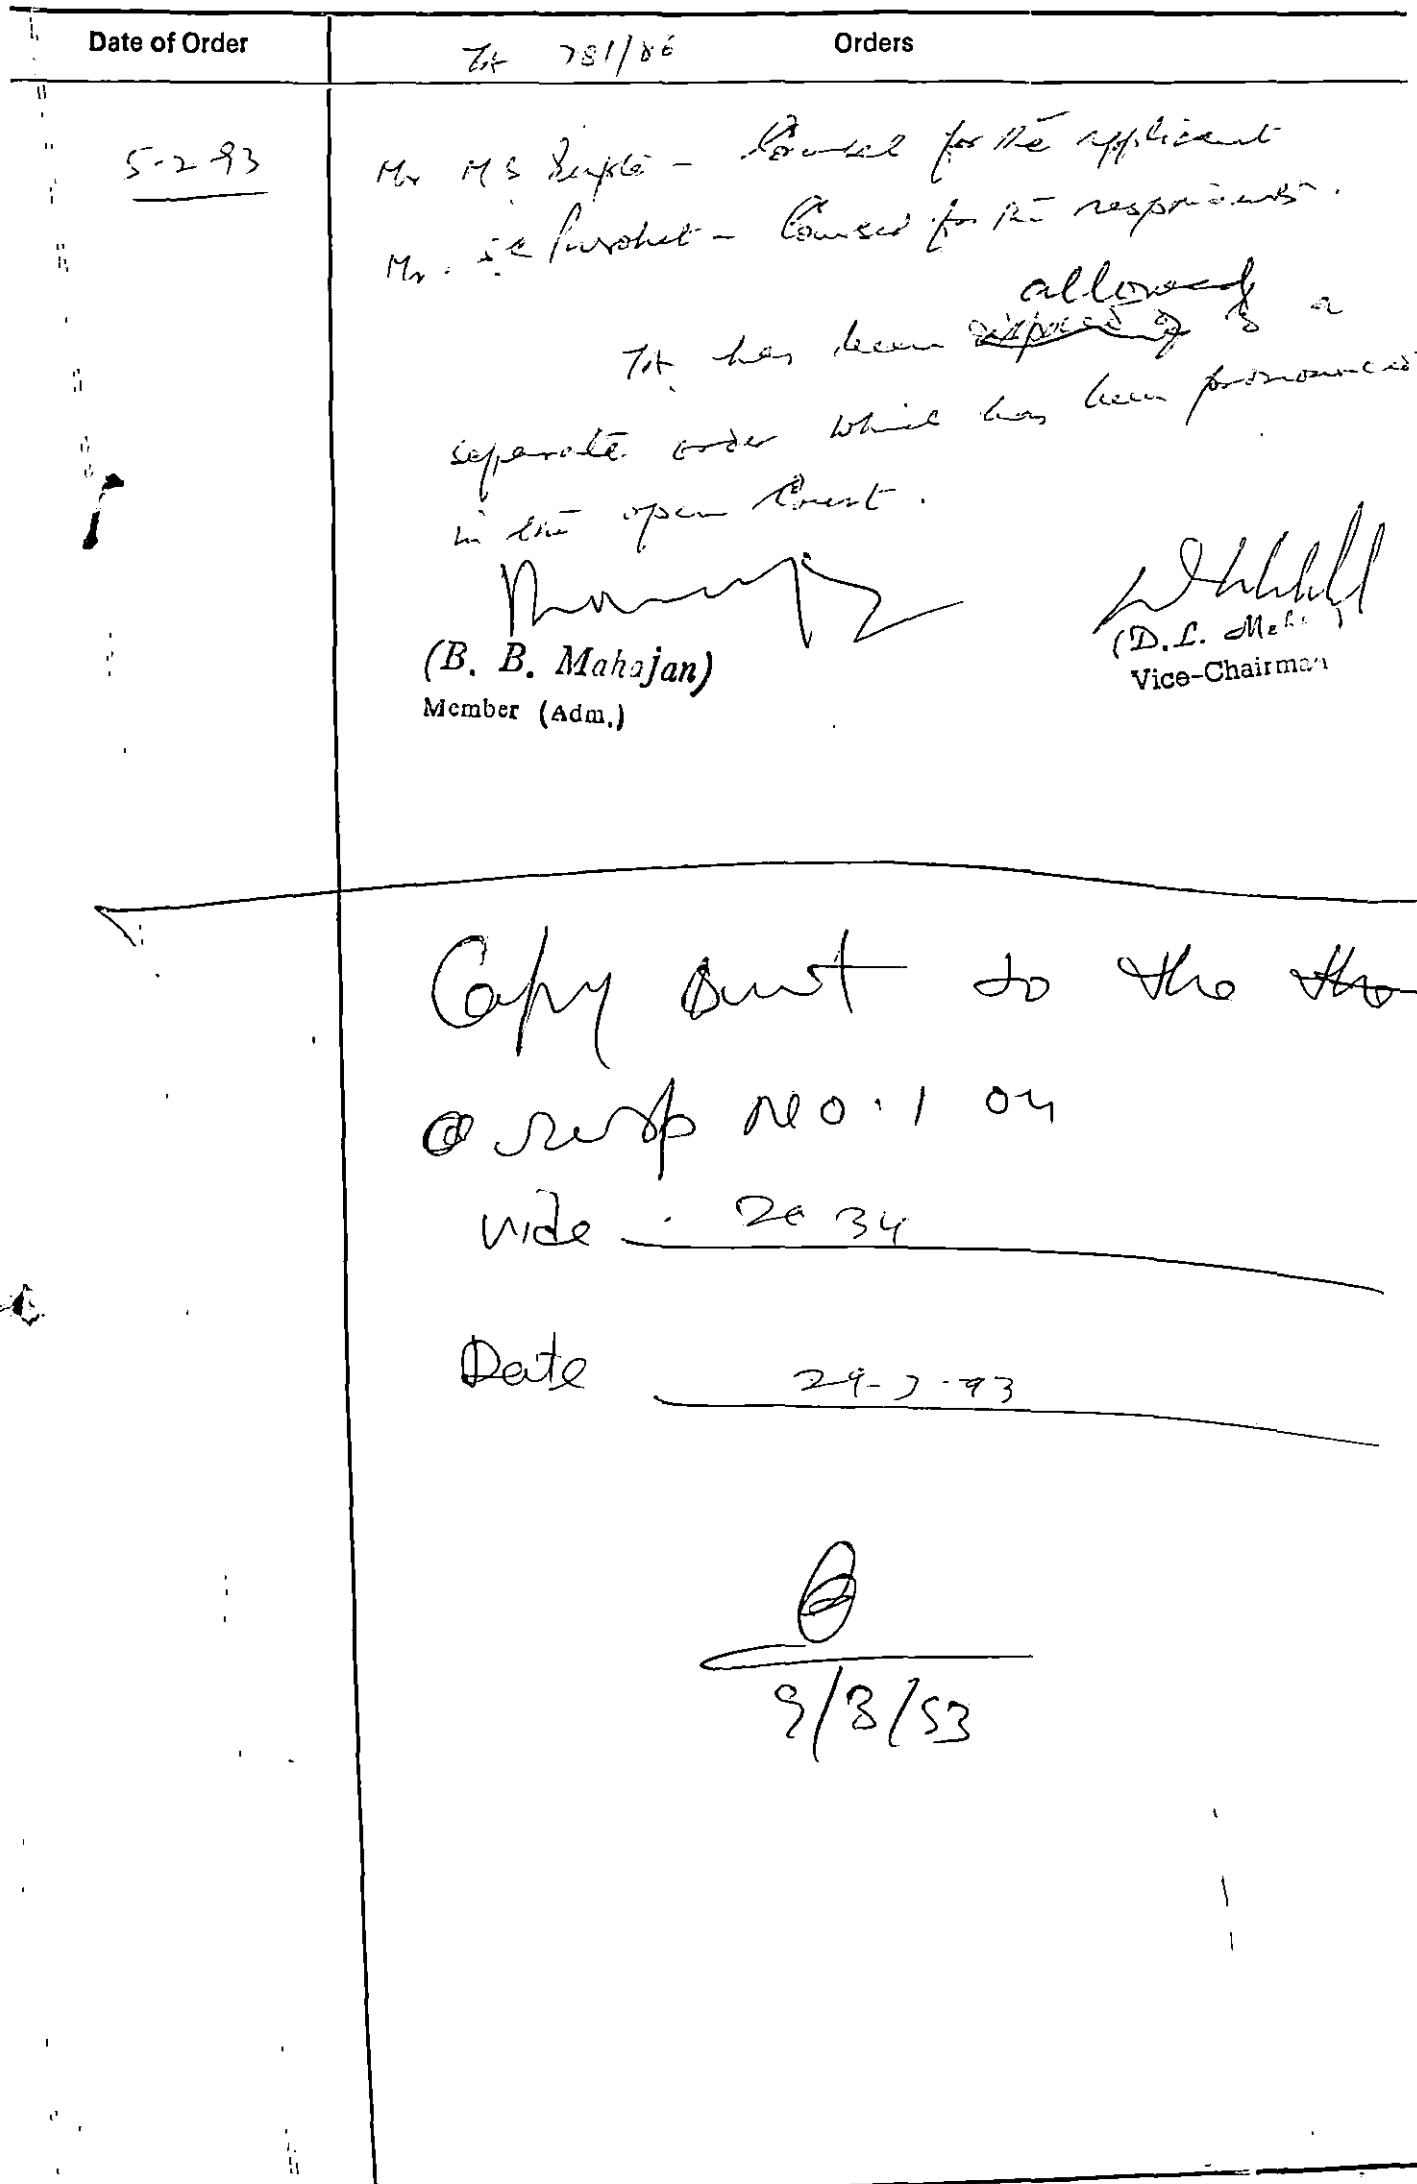 Date of Order
TA 781/86 Orders
5-2-93
Mr M S Gupta - Counsel for the applicant
Mr. Purohit - Counsel for the respondents.
allowed
TA has been disposed of by a
separate order which has been pronounced
in the open Court.
(B. B. Mahajan)
Member (Adm.)
(D.L. Meh
Vice-Chairman
Copy sent to the the
resp NO. 1 on
vide : 2034
Date 29-7-93
9/8/93